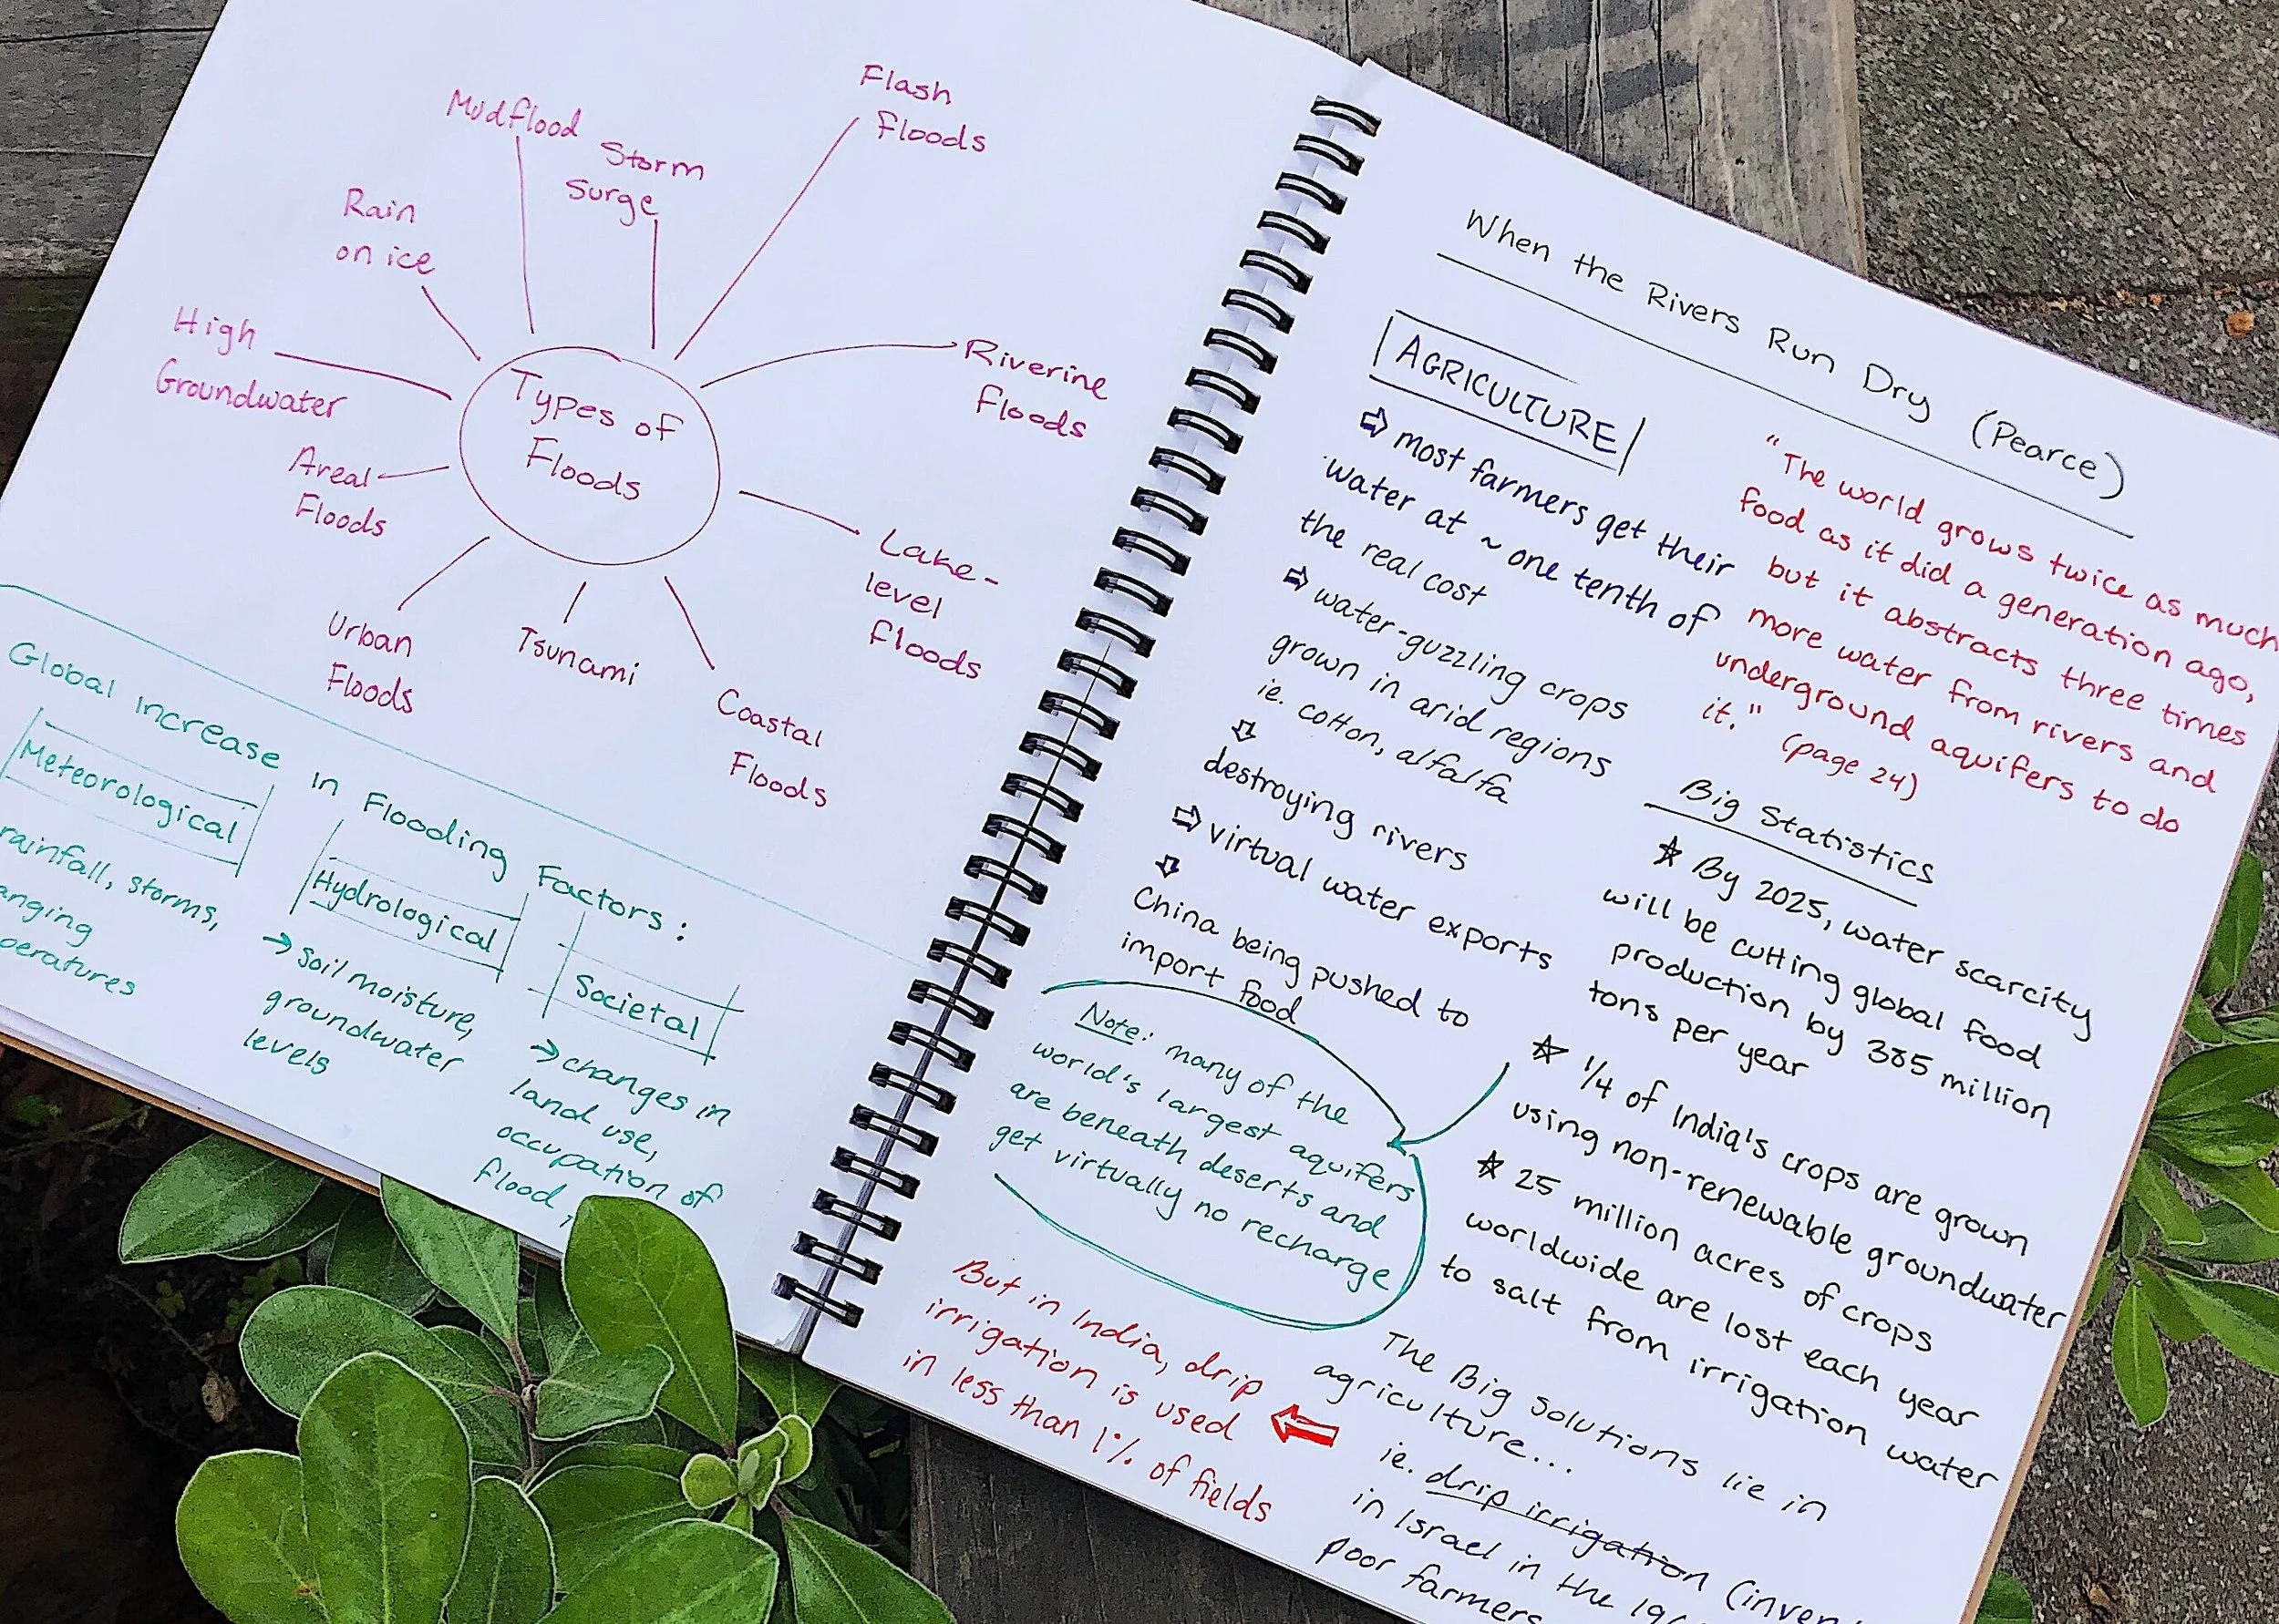 Flash
Floods
Mudflood
Storm
Surge
Rain
on ice
High
Groundwater
Riverine
Floods
Types of
Floods
Areal
Floods
Lake-
level
floods
Urban
Floods
Tsunami
Coastal
Floods
Global increase in Flooding Factors:
Meteorological
rainfall, storms,
Hydrological
→ soil moisture,
groundwater
levels
Societal
→ changes in
land use,
occupation of
flood
When the Rivers Run Dry (Pearce)
AGRICULTURE
⇨ most farmers get their
water at ~ one tenth of
the real cost
⇨ water-guzzling crops
grown in arid regions
ie. cotton, alfalfa
⇩
destroying rivers
⇨ virtual water exports
⇩
China being pushed to
import food
Note: many of the
world's largest aquifers
are beneath deserts and
get virtually no recharge
"The world grows twice as much
food as it did a generation ago,
but it abstracts three times
more water from rivers and
underground aquifers to do
it." (page 24)
Big Statistics
☆ By 2025, water scarcity
will be cutting global food
production by 385 million
tons per year
☆ 1/4 of India's crops are grown
using non-renewable groundwater
☆ 25 million acres of crops
worldwide are lost each year
to salt from irrigation water
The Big Solutions lie in
agriculture...
ie. drip irrigation
in Israel in the
poor farmers
But in India, drip
irrigation is used
in less than 1% of fields